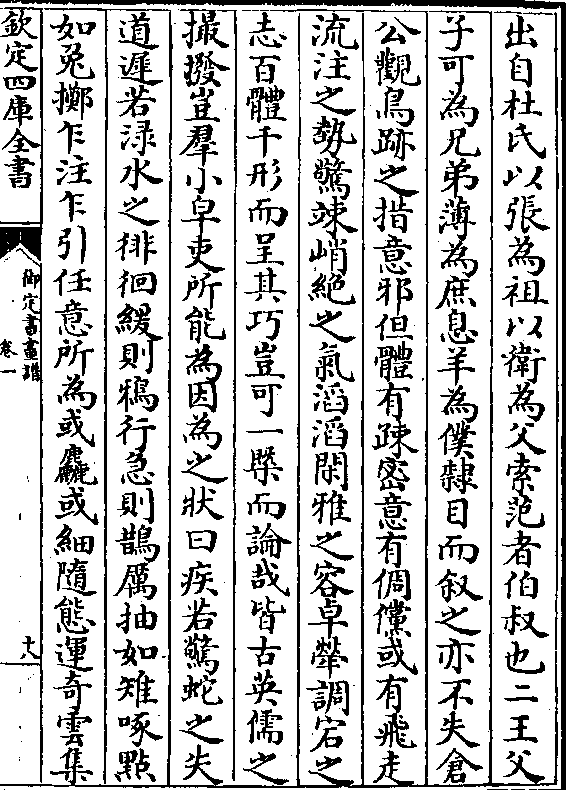 出自杜氏以張為祖以衛為父索范者伯叔也二王父
子可為兄弟薄為庶息羊為僕隸目而叙之亦不失倉
公觀鳥跡之措意邪但體有疎密意有倜儻或有飛走
流注之勢驚竦峭絶之氣滔滔閑雅之容卓犖調宕之
志百體千形而呈其巧豈可一槩而論哉皆古英儒之
撮撥豈羣小皁吏所能為因為之狀曰疾若驚蛇之失
道遲若渌水之徘徊緩則鴉行急則鵲厲抽如雉啄點
如兎擲乍注乍引任意所為或麤或細隨態運奇雲集
欽定四庫全書
御定書畫譜
卷一
十八